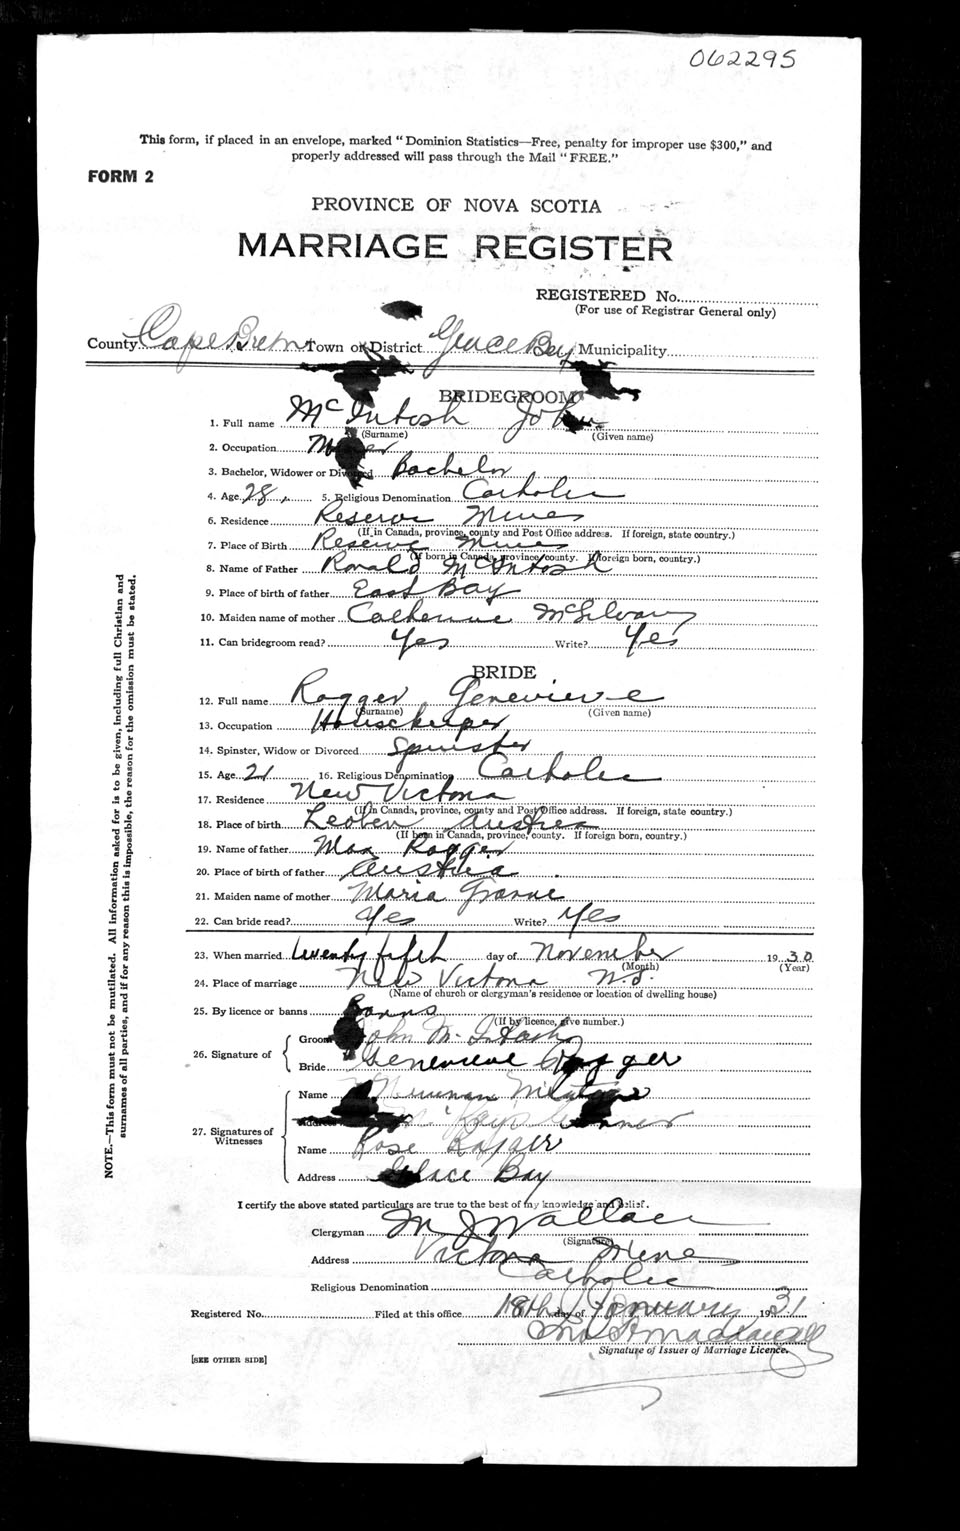 062295
This form, if placed in an envelope, marked "Dominion Statistics—Free, penalty for improper use $300," and
properly addressed will pass through the Mail "FREE."
FORM 2
PROVINCE OF NOVA SCOTIA
MARRIAGE REGISTER
REGISTERED No.
(For use of Registrar General only)
County Cape Breton Town or District Glace Bay Municipality
BRIDEGROOM
1. Full name McIntosh John
(Surname) (Given name)
2. Occupation Miner
3. Bachelor, Widower or Divorced Bachelor
4. Age 28 5. Religious Denomination Catholic
6. Residence Reserve Mines
(If in Canada, province, county and Post Office address. If foreign, state country.)
7. Place of Birth Reserve Mines
(If born in Canada, province, county. If foreign born, country.)
8. Name of Father Ronald McIntosh
9. Place of birth of father East Bay
10. Maiden name of mother Catherine
11. Can bridegroom read? Yes Write? Yes
BRIDE
12. Full name Ragger Genevieve
(Surname) (Given name)
13. Occupation Housekeeper
14. Spinster, Widow or Divorced Spinster
15. Age 21 16. Religious Denomination Catholic
17. Residence New Victoria
(If in Canada, province, county and Post Office address. If foreign, state country.)
18. Place of birth Leoben Austria
(If born in Canada, province, county. If foreign born, country.)
19. Name of father Max Ragger
20. Place of birth of father Austria
21. Maiden name of mother Maria
22. Can bride read? Yes Write? Yes
23. When married twenty fifth day of November 1930
(Month) (Year)
24. Place of marriage New Victoria N.S.
(Name of church or clergyman's residence or location of dwelling house)
25. By licence or banns Banns
(If by licence, give number.)
26. Signature of
Groom John McIntosh
Bride Genevieve Ragger
27. Signatures of Witnesses
Name
Address
Name Rose Ragger
Address Glace Bay
I certify the above stated particulars are true to the best of my knowledge and belief.
Clergyman M J Wallace
(Signature)
Address Victoria Mine
Religious Denomination Catholic
Registered No. Filed at this office 18th day of January 1931
Signature of Issuer of Marriage Licence.
[SEE OTHER SIDE]
NOTE.—This form must not be mutilated. All information asked for is to be given, including full Christian and
surnames of all parties, and if for any reason this is impossible, the reason for the omission must be stated.